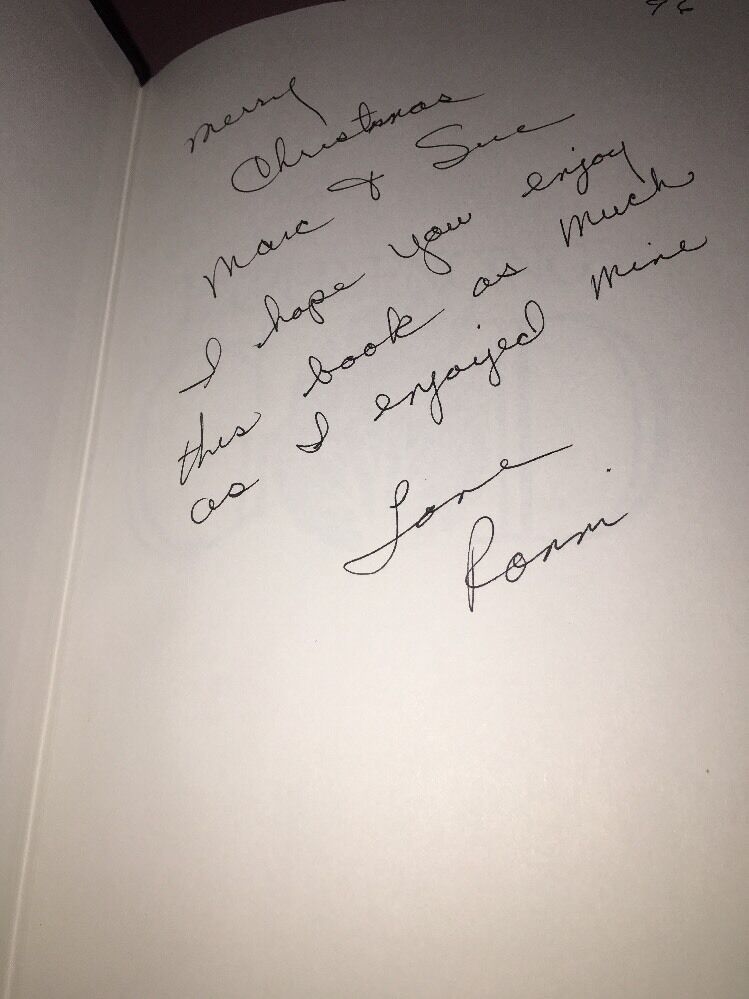 96
Merry
Christmas
Marc & Sue
I hope you enjoy
this book as much
as I enjoyed mine
Love
Ronni